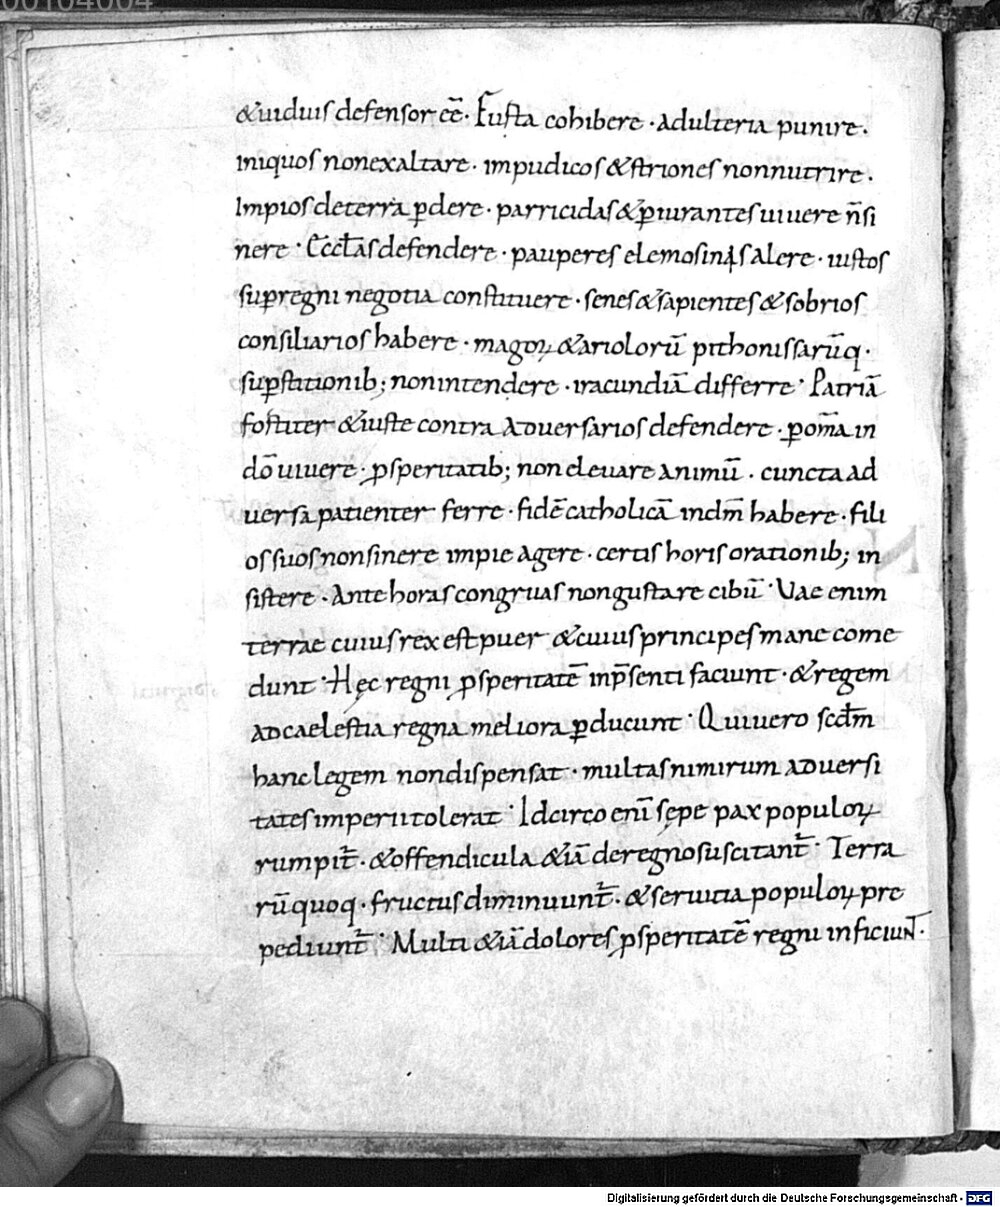 00104004
&uiduis defensor eē. Furta cohibere. adulteria punire.
iniquos non exaltare. impudicos & striones non nutrire.
Impios de terra ꝑdere. parricidas & ꝑiurantes uiuere n̄ si
nere. Ęcclas̄ defendere. pauperes elemosinis alere. iustos
suꝑ regni negotia constituere. senes & sapientes & sobrios
consiliarios habere. magoꝝ & ariolorū pithonissarūq.
suꝑstitionib; non intendere. iracundiā differre. Patriā
fortiter & iuste contra aduersarios defendere. ꝑ om̄a in
dō uiuere. ꝓsperitatib; non eleuare animū. cuncta ad
uersa patienter ferre. fidē catholicā in dm̄ habere. fili
os suos non sinere impie agere. certis horis orationib; in
sistere. Ante horas congruas non gustare cibū. Vae enim
terrae cuius rex est puer & cuius principes mane come
dunt. Hęc regni ꝓsperitatē in p̄senti faciunt. & regem
ad caelestia regna meliora ꝑducunt. Qui uero scdm̄
hanc legem non dispensat. multas nimirum aduersi
tates imperii tolerat. Idcirco eni̅ sępe pax populoꝝ
rumpit̄. & offendicula &iā de regno suscitant̄. Terra
rū quoq. fructus diminuunt̄. & seruitia populoꝝ pre
pediunt̄. Multi &iā dolores ꝓsperitatē regni inficiunt.
Digitalisierung gefördert durch die Deutsche Forschungsgemeinschaft - DFG